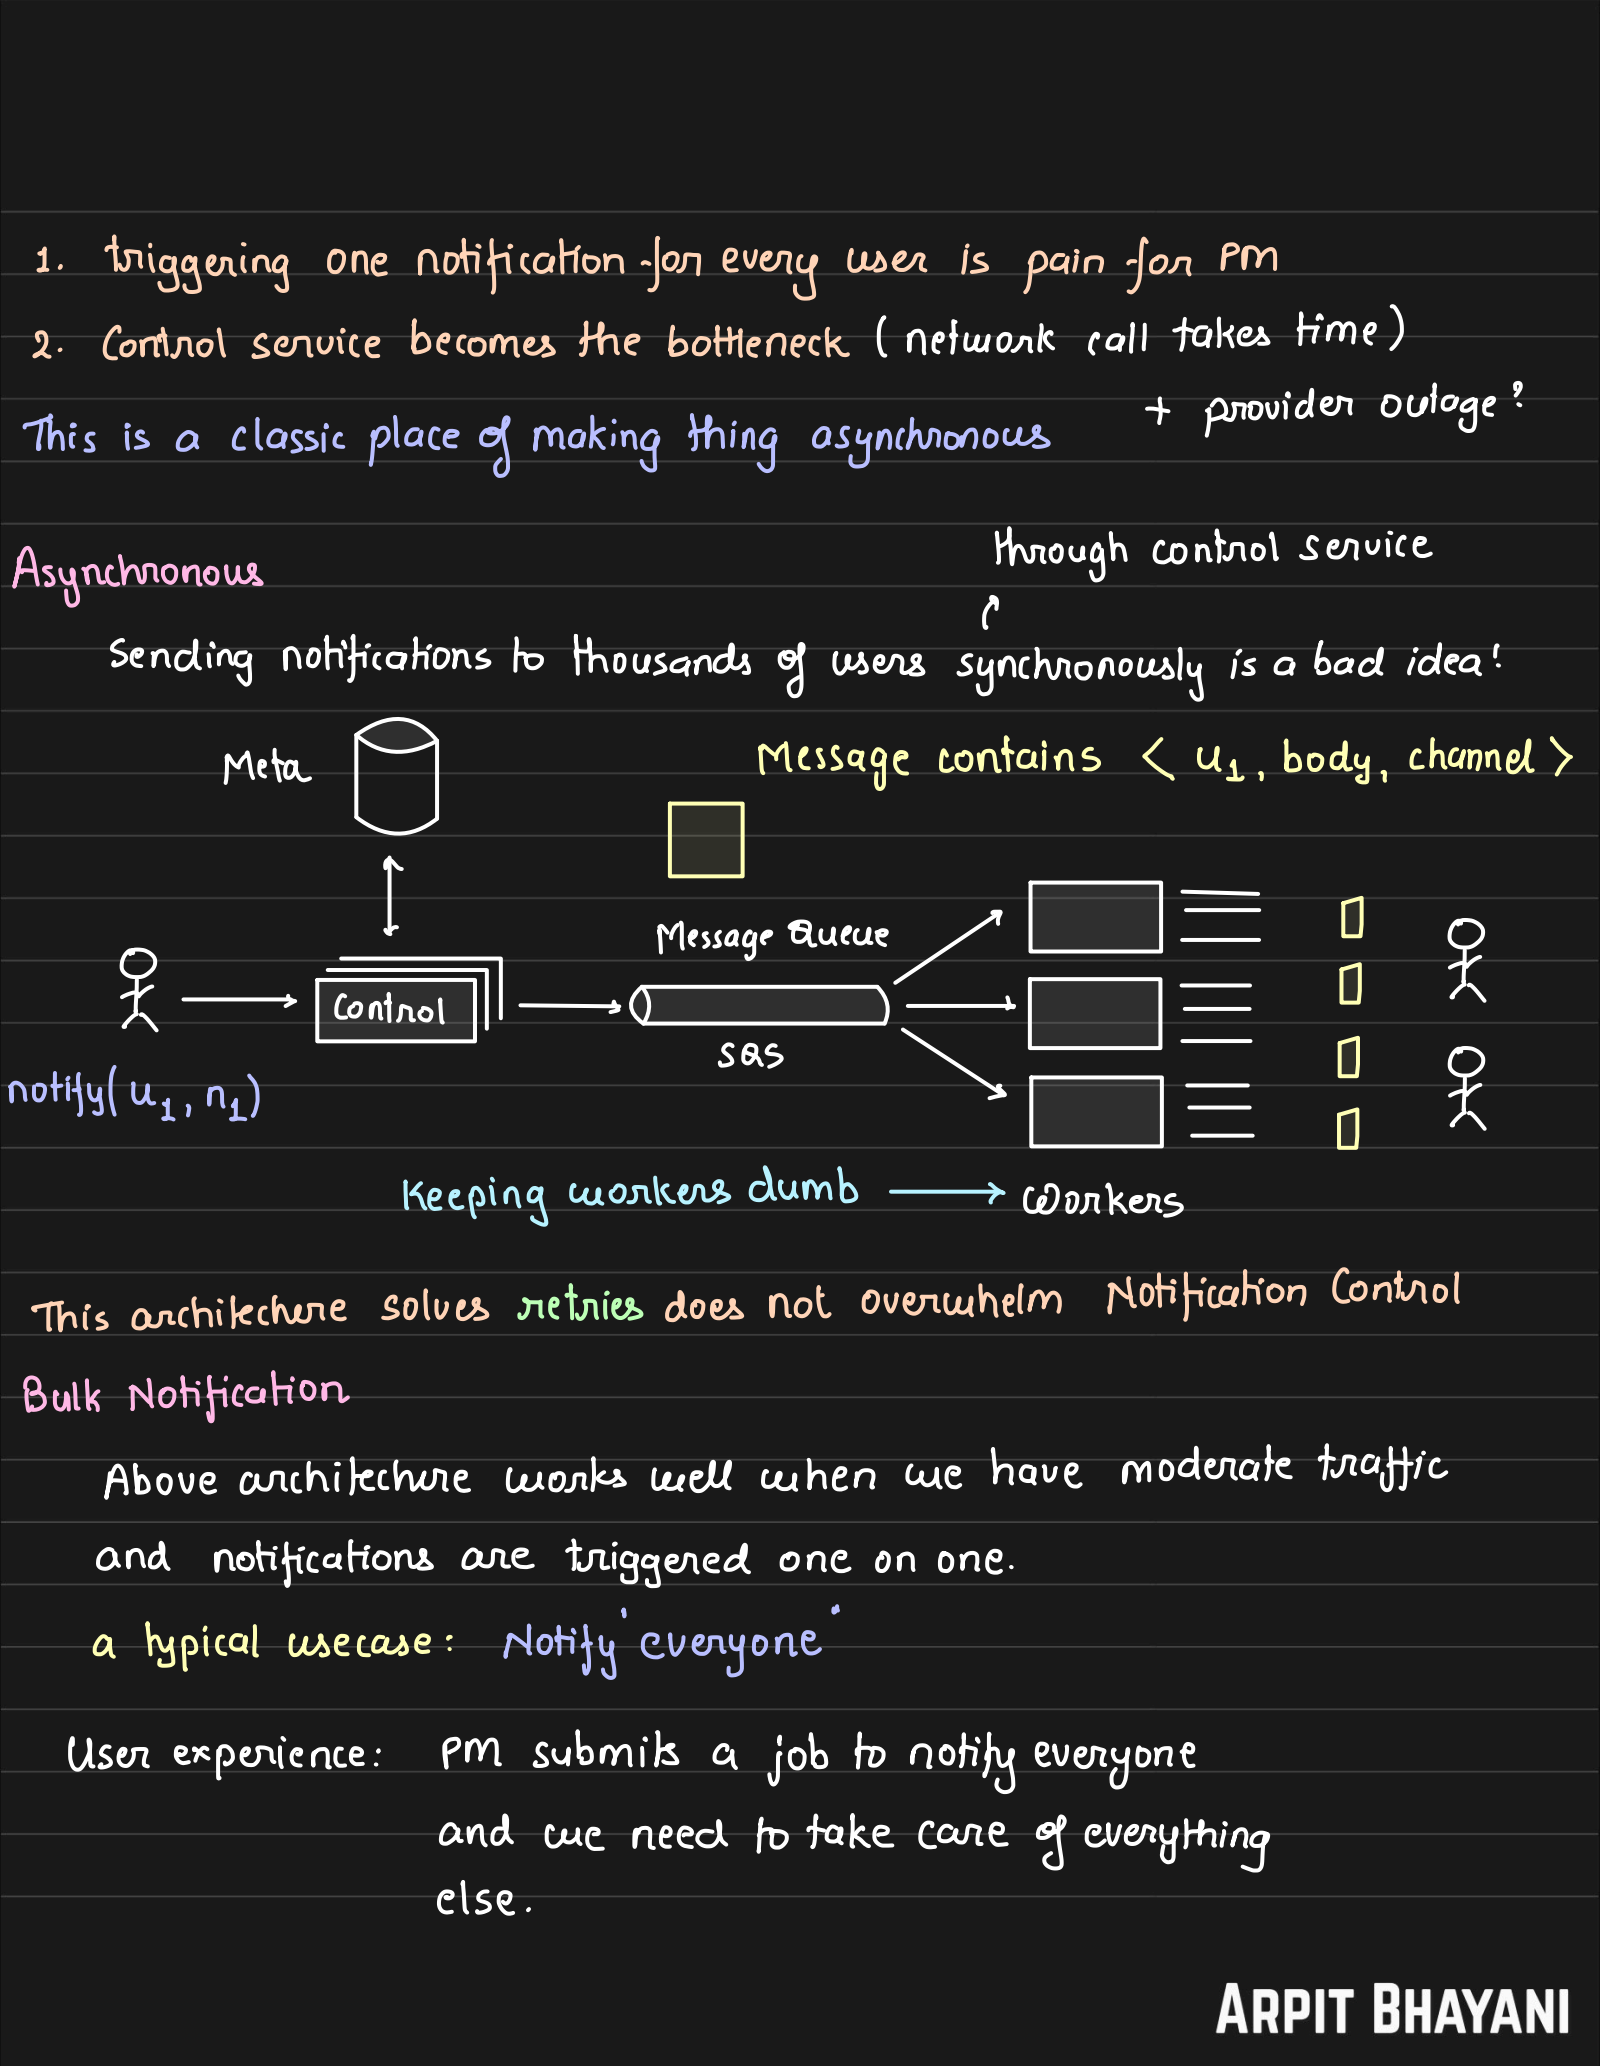 1. triggering one notification for every user is pain for PM
2. Control service becomes the bottleneck (network call takes time)
+ provider outage?
This is a classic place of making thing asynchronous
through control service
Asynchronous
Sending notifications to thousands of users synchronously is a bad idea!
Meta
Message contains < u1, body, channel >
Message Queue
Control
SQS
notify(u1, n1)
Keeping workers dumb → Workers
This architecture solves retries does not overwhelm Notification Control
Bulk Notification
Above architecture works well when we have moderate traffic
and notifications are triggered one on one.
a typical usecase: Notify 'everyone"
User experience: PM submits a job to notify everyone
and we need to take care of everything
else.
ARPIT BHAYANI